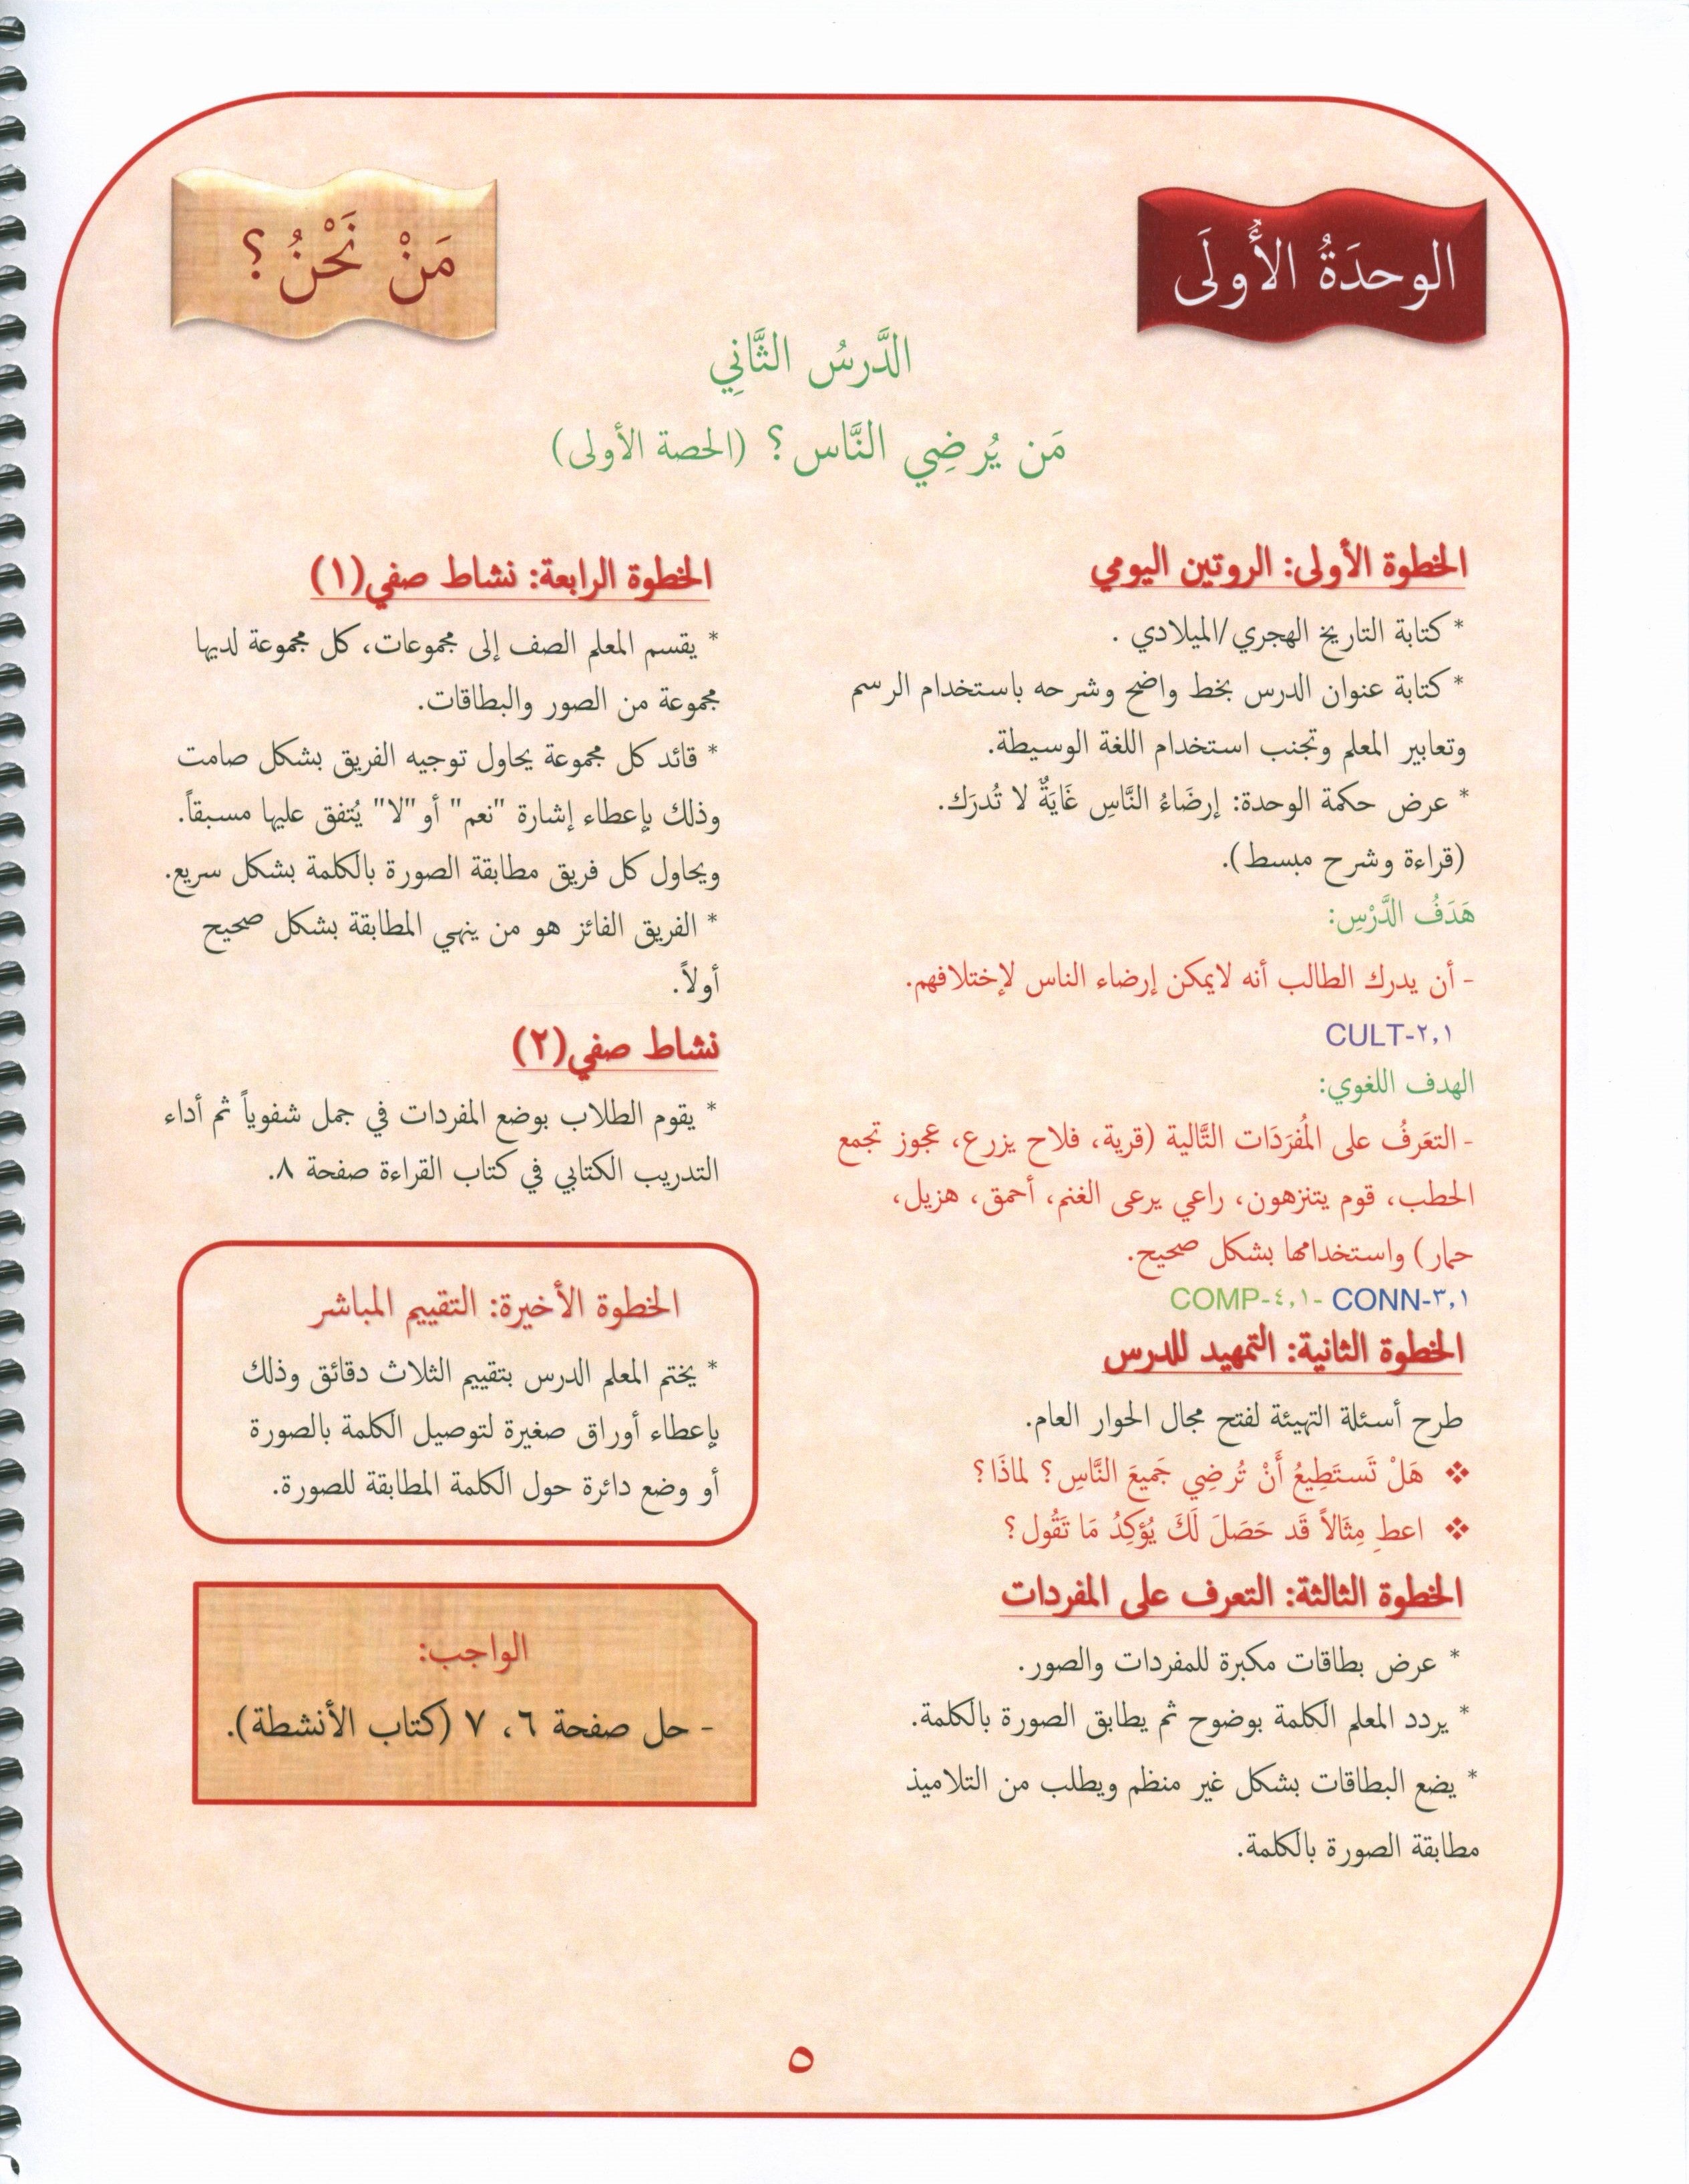 الوحدَةُ الأُولَى
مَنْ نَحْنُ؟
الدَّرسُ الثَّانِي
مَن يُرضِي النَّاس؟ (الحصة الأولى)
الخطوة الأولى: الروتين اليومي
* كتابة التاريخ الهجري/الميلادي .
* كتابة عنوان الدرس بخط واضح وشرحه باستخدام الرسم
وتعابير المعلم وتجنب استخدام اللغة الوسيطة.
* عرض حكمة الوحدة: إرضَاءُ النَّاسِ غَايَةٌ لا تُدرَك.
(قراءة وشرح مبسط).
هَدَفُ الدَّرْسِ:
- أن يدرك الطالب أنه لايمكن إرضاء الناس لإختلافهم.
CULT-٢,١
الهدف اللغوي:
- التعَرفُ على المُفرَدَات التَّالية (قرية، فلاح يزرع، عجوز تجمع
الحطب، قوم يتنزهون، راعي يرعى الغنم، أحمق، هزيل،
حمار) واستخدامها بشكل صحيح.
COMP-٤,١- CONN-٣,١
الخطوة الثانية: التمهيد للدرس
طرح أسئلة التهيئة لفتح مجال الحوار العام.
❖ هَلْ تَستَطِيعُ أَنْ تُرضِي جَميعَ النَّاسِ؟ لماذَا؟
❖ اعطِ مِثَالاً قَد حَصَلَ لَكَ يُؤكِدُ مَا تَقُول؟
الخطوة الثالثة: التعرف على المفردات
* عرض بطاقات مكبرة للمفردات والصور.
* يردد المعلم الكلمة بوضوح ثم يطابق الصورة بالكلمة.
* يضع البطاقات بشكل غير منظم ويطلب من التلاميذ
مطابقة الصورة بالكلمة.
الخطوة الرابعة: نشاط صفي(١)
* يقسم المعلم الصف إلى مجموعات، كل مجموعة لديها
مجموعة من الصور والبطاقات.
* قائد كل مجموعة يحاول توجيه الفريق بشكل صامت
وذلك بإعطاء إشارة "نعم" أو "لا" يُتفق عليها مسبقاً.
ويحاول كل فريق مطابقة الصورة بالكلمة بشكل سريع.
* الفريق الفائز هو من ينهي المطابقة بشكل صحيح
أولاً.
نشاط صفي(٢)
* يقوم الطلاب بوضع المفردات في جمل شفوياً ثم أداء
التدريب الكتابي في كتاب القراءة صفحة ٨.
الخطوة الأخيرة: التقييم المباشر
* يختم المعلم الدرس بتقييم الثلاث دقائق وذلك
بإعطاء أوراق صغيرة لتوصيل الكلمة بالصورة
أو وضع دائرة حول الكلمة المطابقة للصورة.
الواجب:
- حل صفحة ٦، ٧ (كتاب الأنشطة).
٥